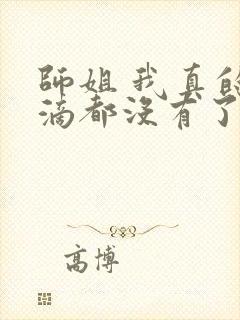 師姐我真的
滴都沒有了
高博